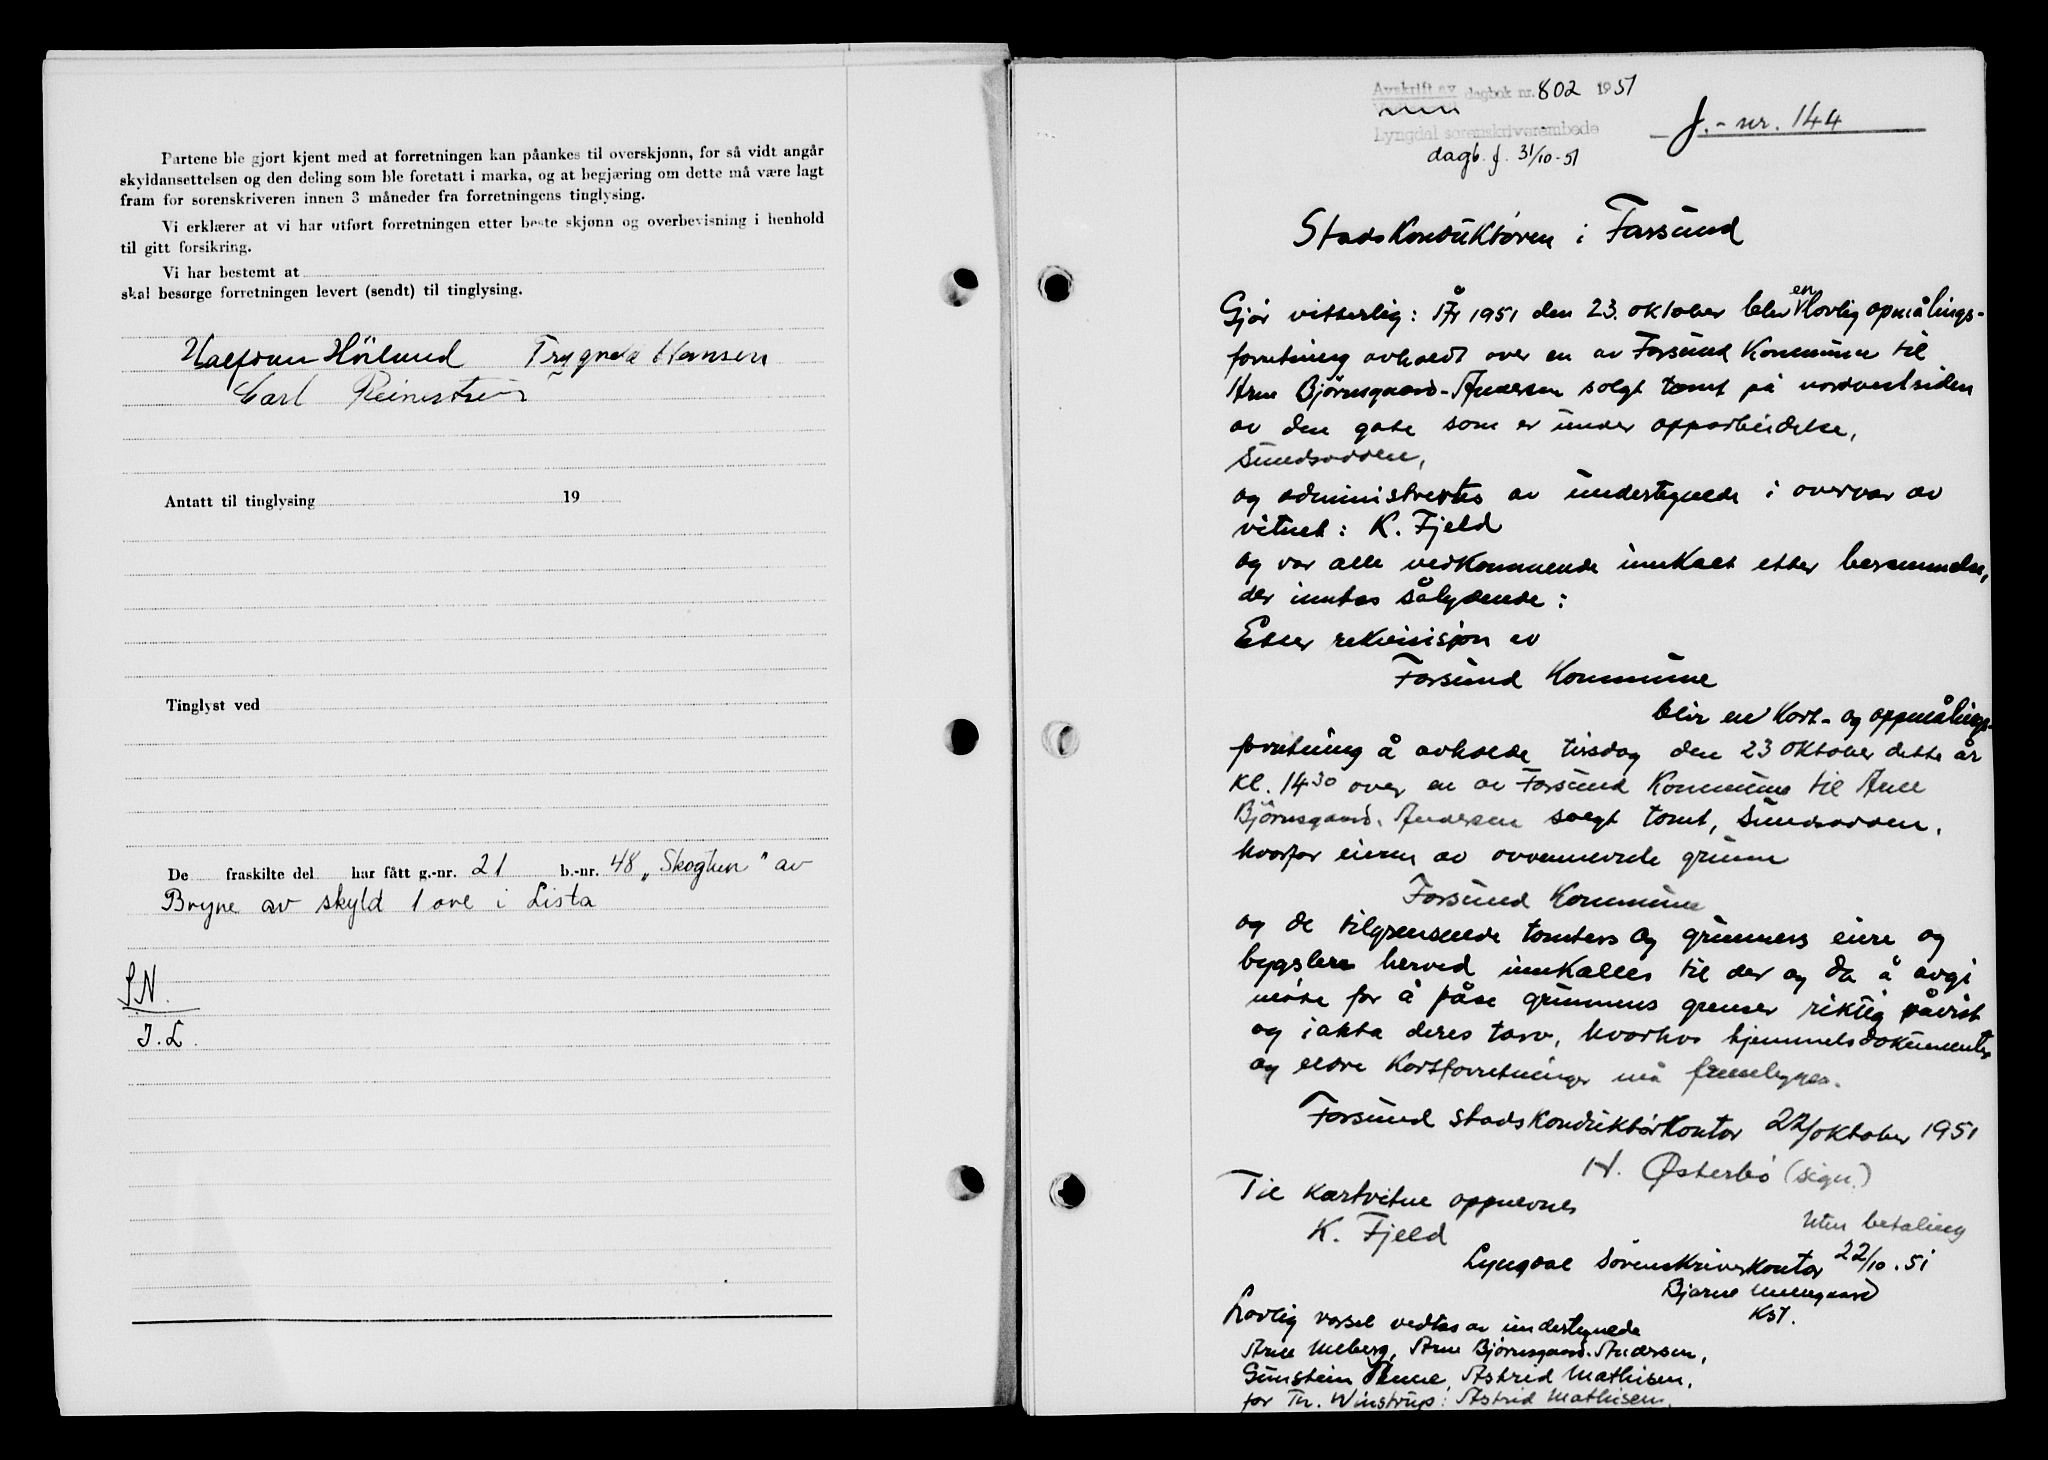 Partene ble gjort kjent med at forretningen kan påankes til overskjønn, for så vidt angår
skyldansettelsen og den deling som ble foretatt i marka, og at begjæring om dette må være lagt
fram for sorenskriveren innen 3 måneder fra forretningens tinglysing.
Vi erklærer at vi har utført forretningen etter beste skjønn og overbevisning i henhold
til gitt forsikring.
Vi har bestemt at
skal besørge forretningen levert (sendt) til tinglysing.
Halfdan Hörlund Trygve Hansen
Carl
Antatt til tinglysing 19
Tinglyst ved
De fraskilte del har fått g.-nr. 21 b.-nr. 48 „Skoglun" av
Bryne av skyld 1 øre i Lista
S.N.
J.L.
Avskrift av dagbok nr. 802 1951
Lyngdal sorenskriverembede
dagb. f. 31/10-51
J.-nr. 144
Stadskonduktøren i Farsund
Gjør vitterlig: År 1951 den 23. oktober blev en lovlig opmålings-
forretning avholdt over en av Farsund Kommune til
Arne Bjørnsgaard-Andersen solgt tomt på nordvestsiden
av den gate som er under opparbeidelse,
Sundsodden,
og administrertes av undertegnede i overvær av
vitnet: K. Fjeld
og var alle vedkommende innkalt etter berammelse,
der inntas sålydende:
Etter rekvisisjon av
Farsund Kommune
blir en kart- og oppmålings-
forretning å avholde tirsdag den 23 oktober dette år
kl. 14³⁰ over en av Farsund Kommune til Arne
Bjørnsgaard-Andersen solgt tomt, Sundsodden,
hvorfor eieren av ovennevnte grunn
Farsund Kommune
og de tilgrensende tomters og grunners eiere og
bygslere herved innkalles til der og da å avgi
møte for å påse grunnens grenser riktig påvist
og iakta deres tarv, hvorhos hjemmelsdokumenter
og eldre kartforretninger må fremlegges.
Farsund stadskonduktørkontor 22/oktober 1951
H. Østerbø (sign.)
Til kartvitne oppnevnes
K. Fjeld
Uten betaling
Lyngdal sorenskriverkontor 22/10.51
Bjarne
Kst.
Lovlig varsel vedtas av undertegnede
Arne Meberg, Arne Bjørnsgaard-Andersen,
Gunstein Penne, Astrid Mathisen,
for Th. Winstrup: Astrid Mathisen.